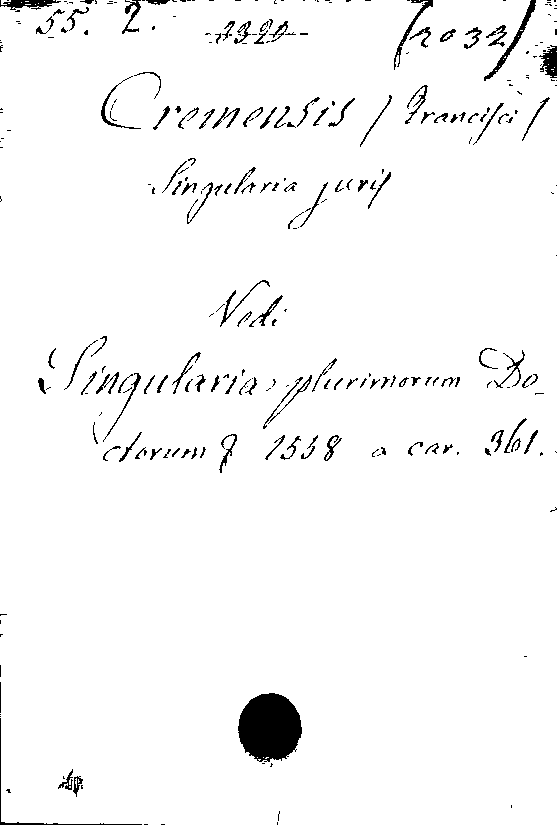 55. 2. 3320 (2032)
Cremensis / Francisci /
Singularia juris
Vedi
Singularia plurimorum Do-
ctorum 1558 a car. 361.